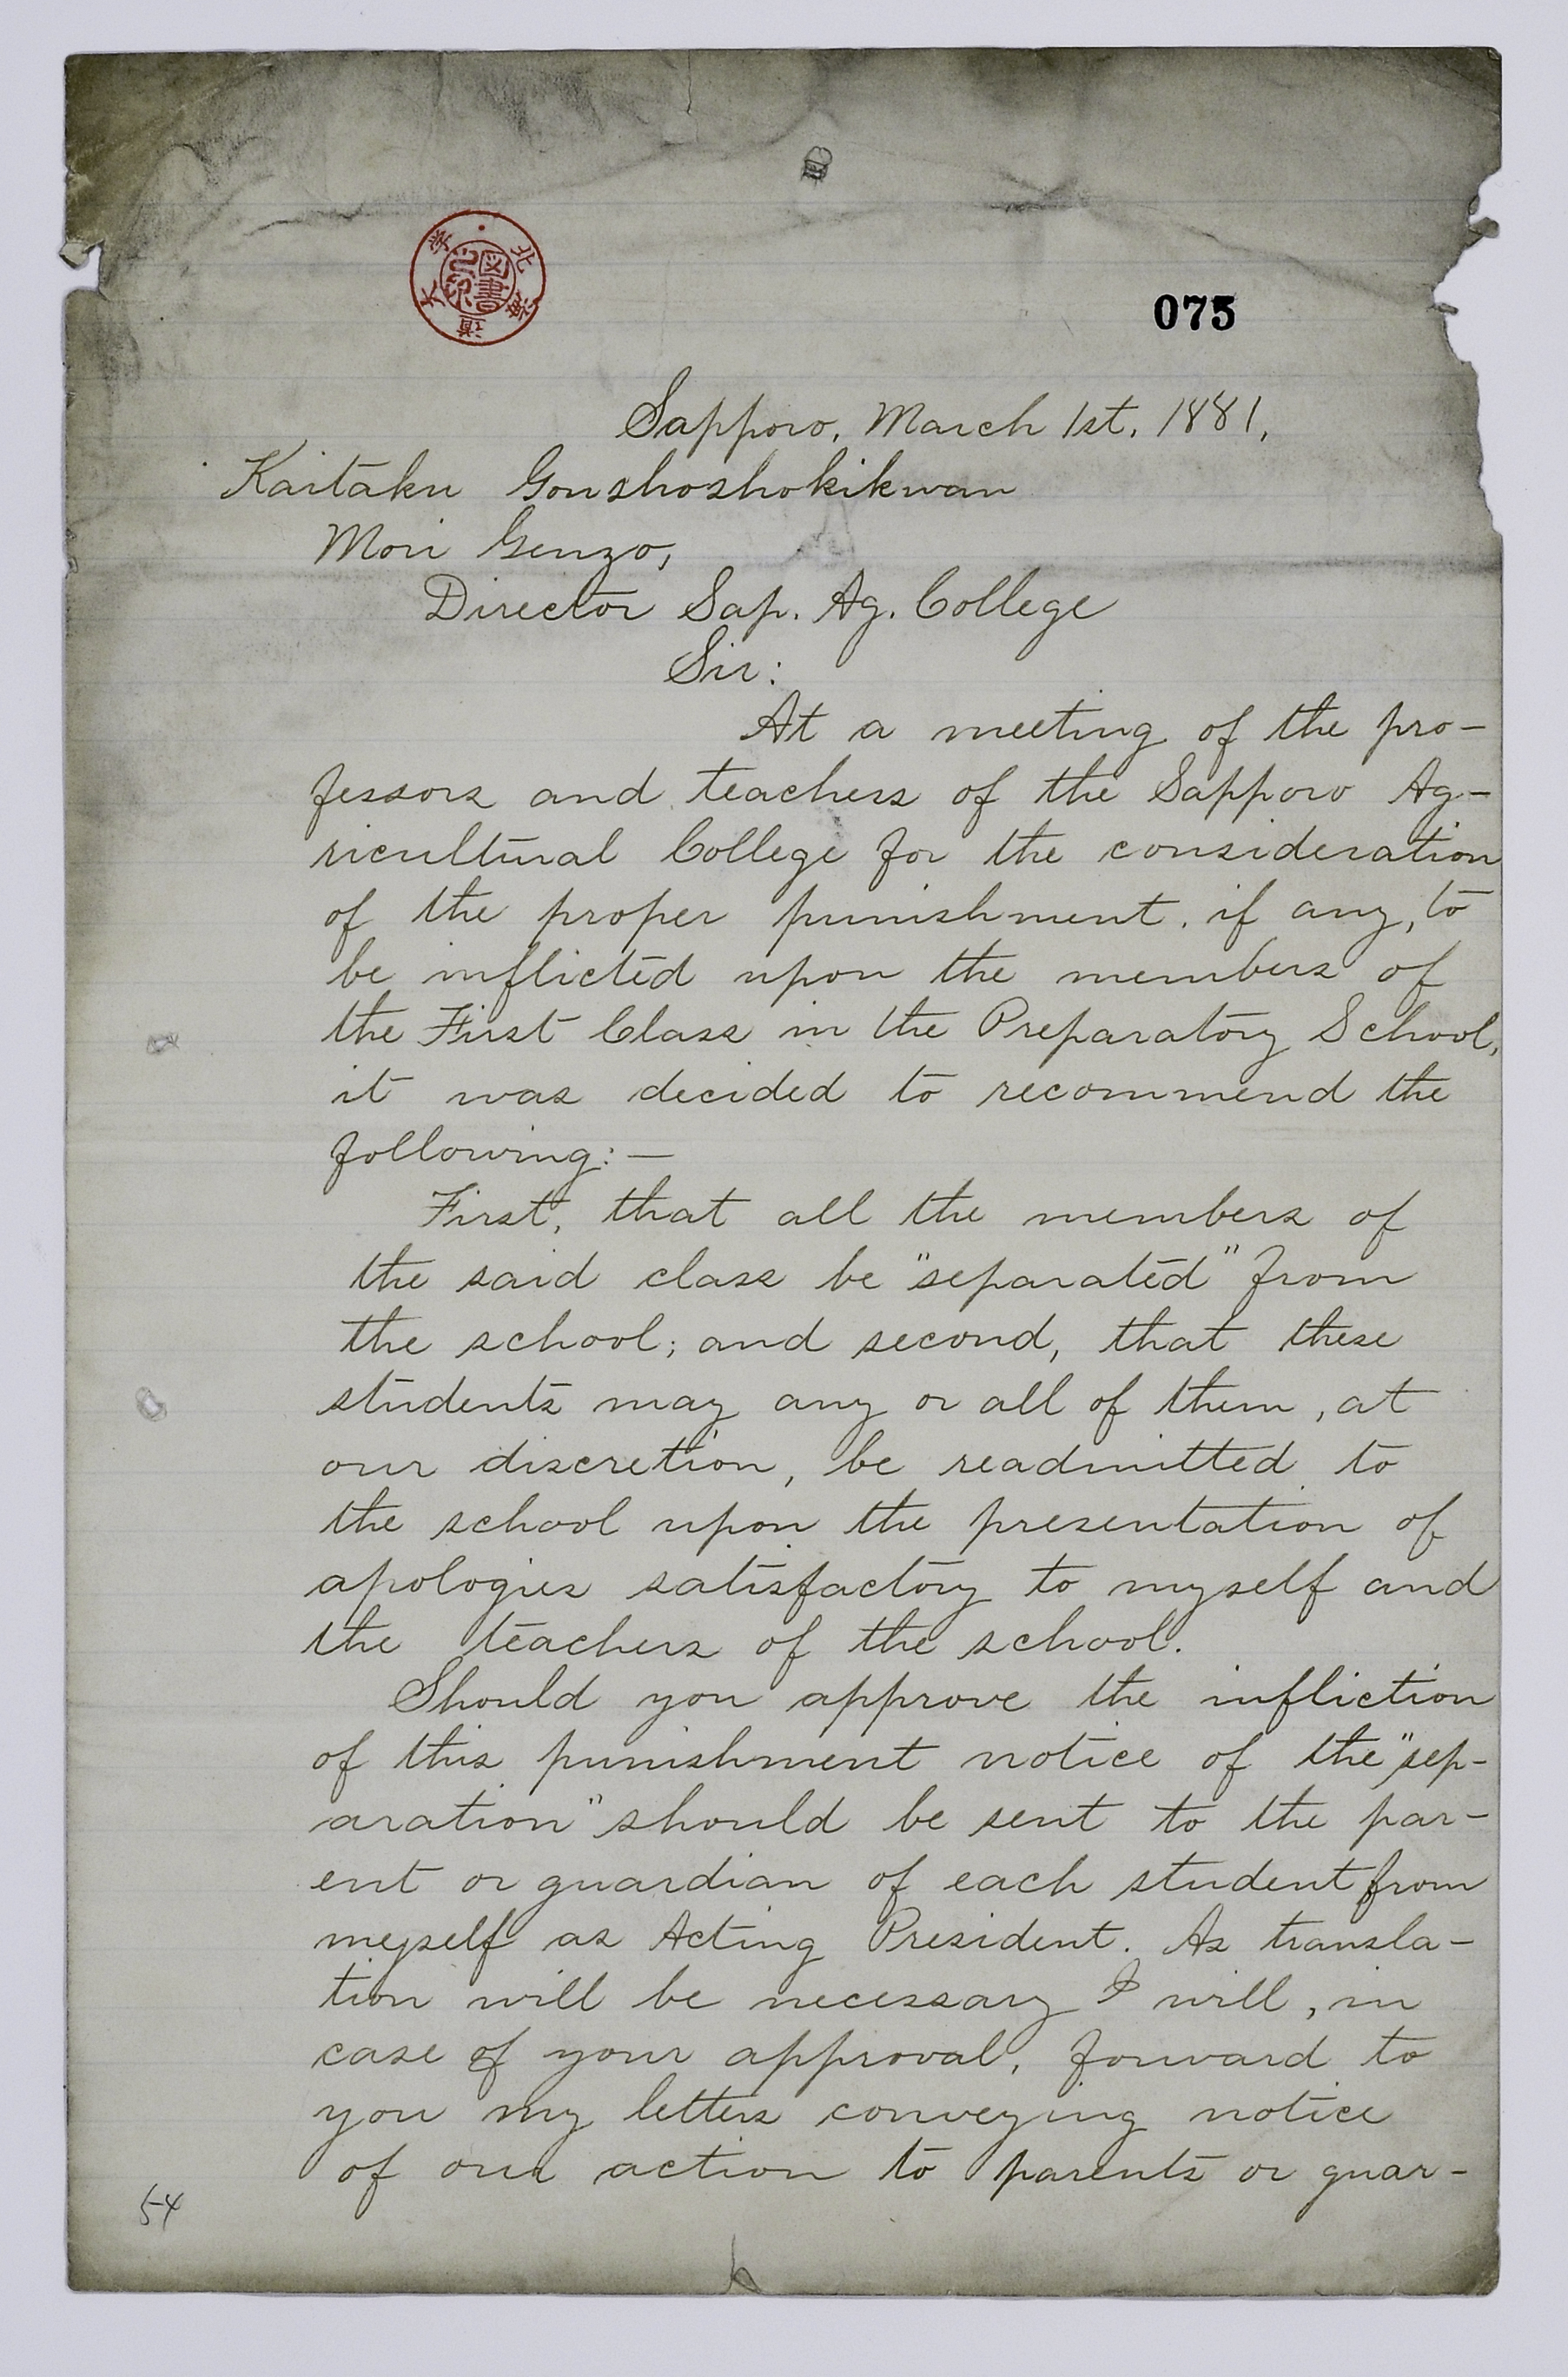 北海道大学
図書之印
075
Sapporo, March 1st, 1881,
Kaitaku Gonshoshokikwan
Mori Genzo,
Director Sap. Ag. College
Sir:
At a meeting of the pro-
fessors and teachers of the Sapporo Ag-
ricultural College for the consideration
of the proper punishment, if any, to
be inflicted upon the members of
the First Class in the Preparatory School,
it was decided to recommend the
following:—
First, that all the members of
the said class be "separated" from
the school; and second, that these
students may any or all of them, at
our discretion, be readmitted to
the school upon the presentation of
apologies satisfactory to myself and
the teachers of the school.
Should you approve the infliction
of this punishment notice of the "sep-
aration" should be sent to the par-
ent or guardian of each student from
myself as Acting President. As transla-
tion will be necessary I will, in
case of your approval, forward to
you my letters conveying notice
of our action to parents or guar-
54